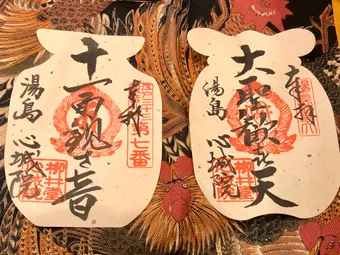 奉拝
大聖歓喜天
湯島 心城院
柳井堂
奉拝
第七番
十一面観世音
湯島 心城院
柳井堂